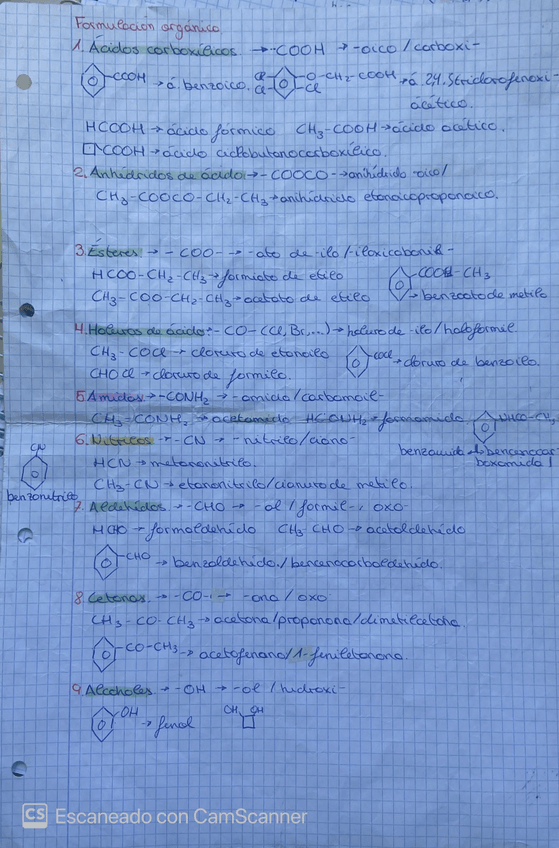 Formulación orgánica
1. Ácidos carboxílicos → -COOH → -oico / carboxi-
-COOH → á. benzoico. Cl- Cl- -O-CH₂-COOH -Cl → á 2,4,5 triclorofenoxi-
ácético.
HCOOH → ácido fórmico CH₃-COOH → ácido acético.
-COOH → ácido ciclobutanocarboxílico.
2. Anhídridos de ácido → -COOCO- → anhídrido -oico/
CH₃-COOCO-CH₂-CH₃ → anhídrido etanoicopropanoico.
3. Ésteres → -COO- → -ato de ilo /-iloxicabonil-
HCOO-CH₂-CH₃ → formiato de etilo
-COO-CH₃
CH₃-COO-CH₂-CH₃ → acetato de etilo → benzoato de metilo
4. Haluros de ácido: -CO-(Cl, Br, ...) → haluro de -ilo / haloformil
CH₃-COCl → cloruro de etanoilo -COCl → cloruro de benzoilo.
CHOCl → cloruro de formilo.
5 Amidas → -CONH₂ → -amida / carbamoil-
CH₃-CONH₂ → acetamida HCONH₂ → formamida
6. Nitrilos → -CN → -nitrilo / ciano-
benzamida
CN
HCN → metanonitrilo.
CH₃-CN → etanonitrilo / cianuro de metilo.
benzonitrilo
7. Aldehídos → -CHO → -al / formil- , oxo-
HCHO → formaldehído CH₃-CHO → acetaldehído
-CHO → benzaldehído. / bencenocarbaldehído.
8 Cetonas → -CO- → -ona / oxo
CH₃-CO-CH₃ → acetona / propanona / dimetilcetona.
-CO-CH₃ → acetofenona / 1-feniletanona.
9. Alcoholes → -OH → -ol / hidroxi-
OH → fenol OH
CS Escaneado con CamScanner